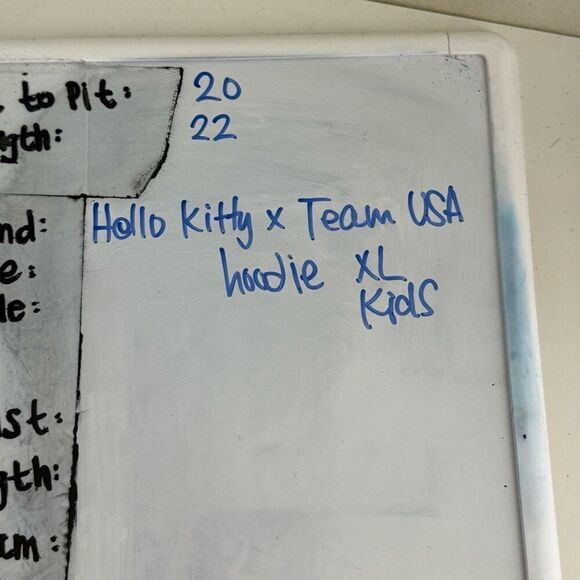 to Pit: 20
gth: 22
nd: Hello Kitty x Team USA
e: hoodie XL
le: Kids
st:
gth:
am: